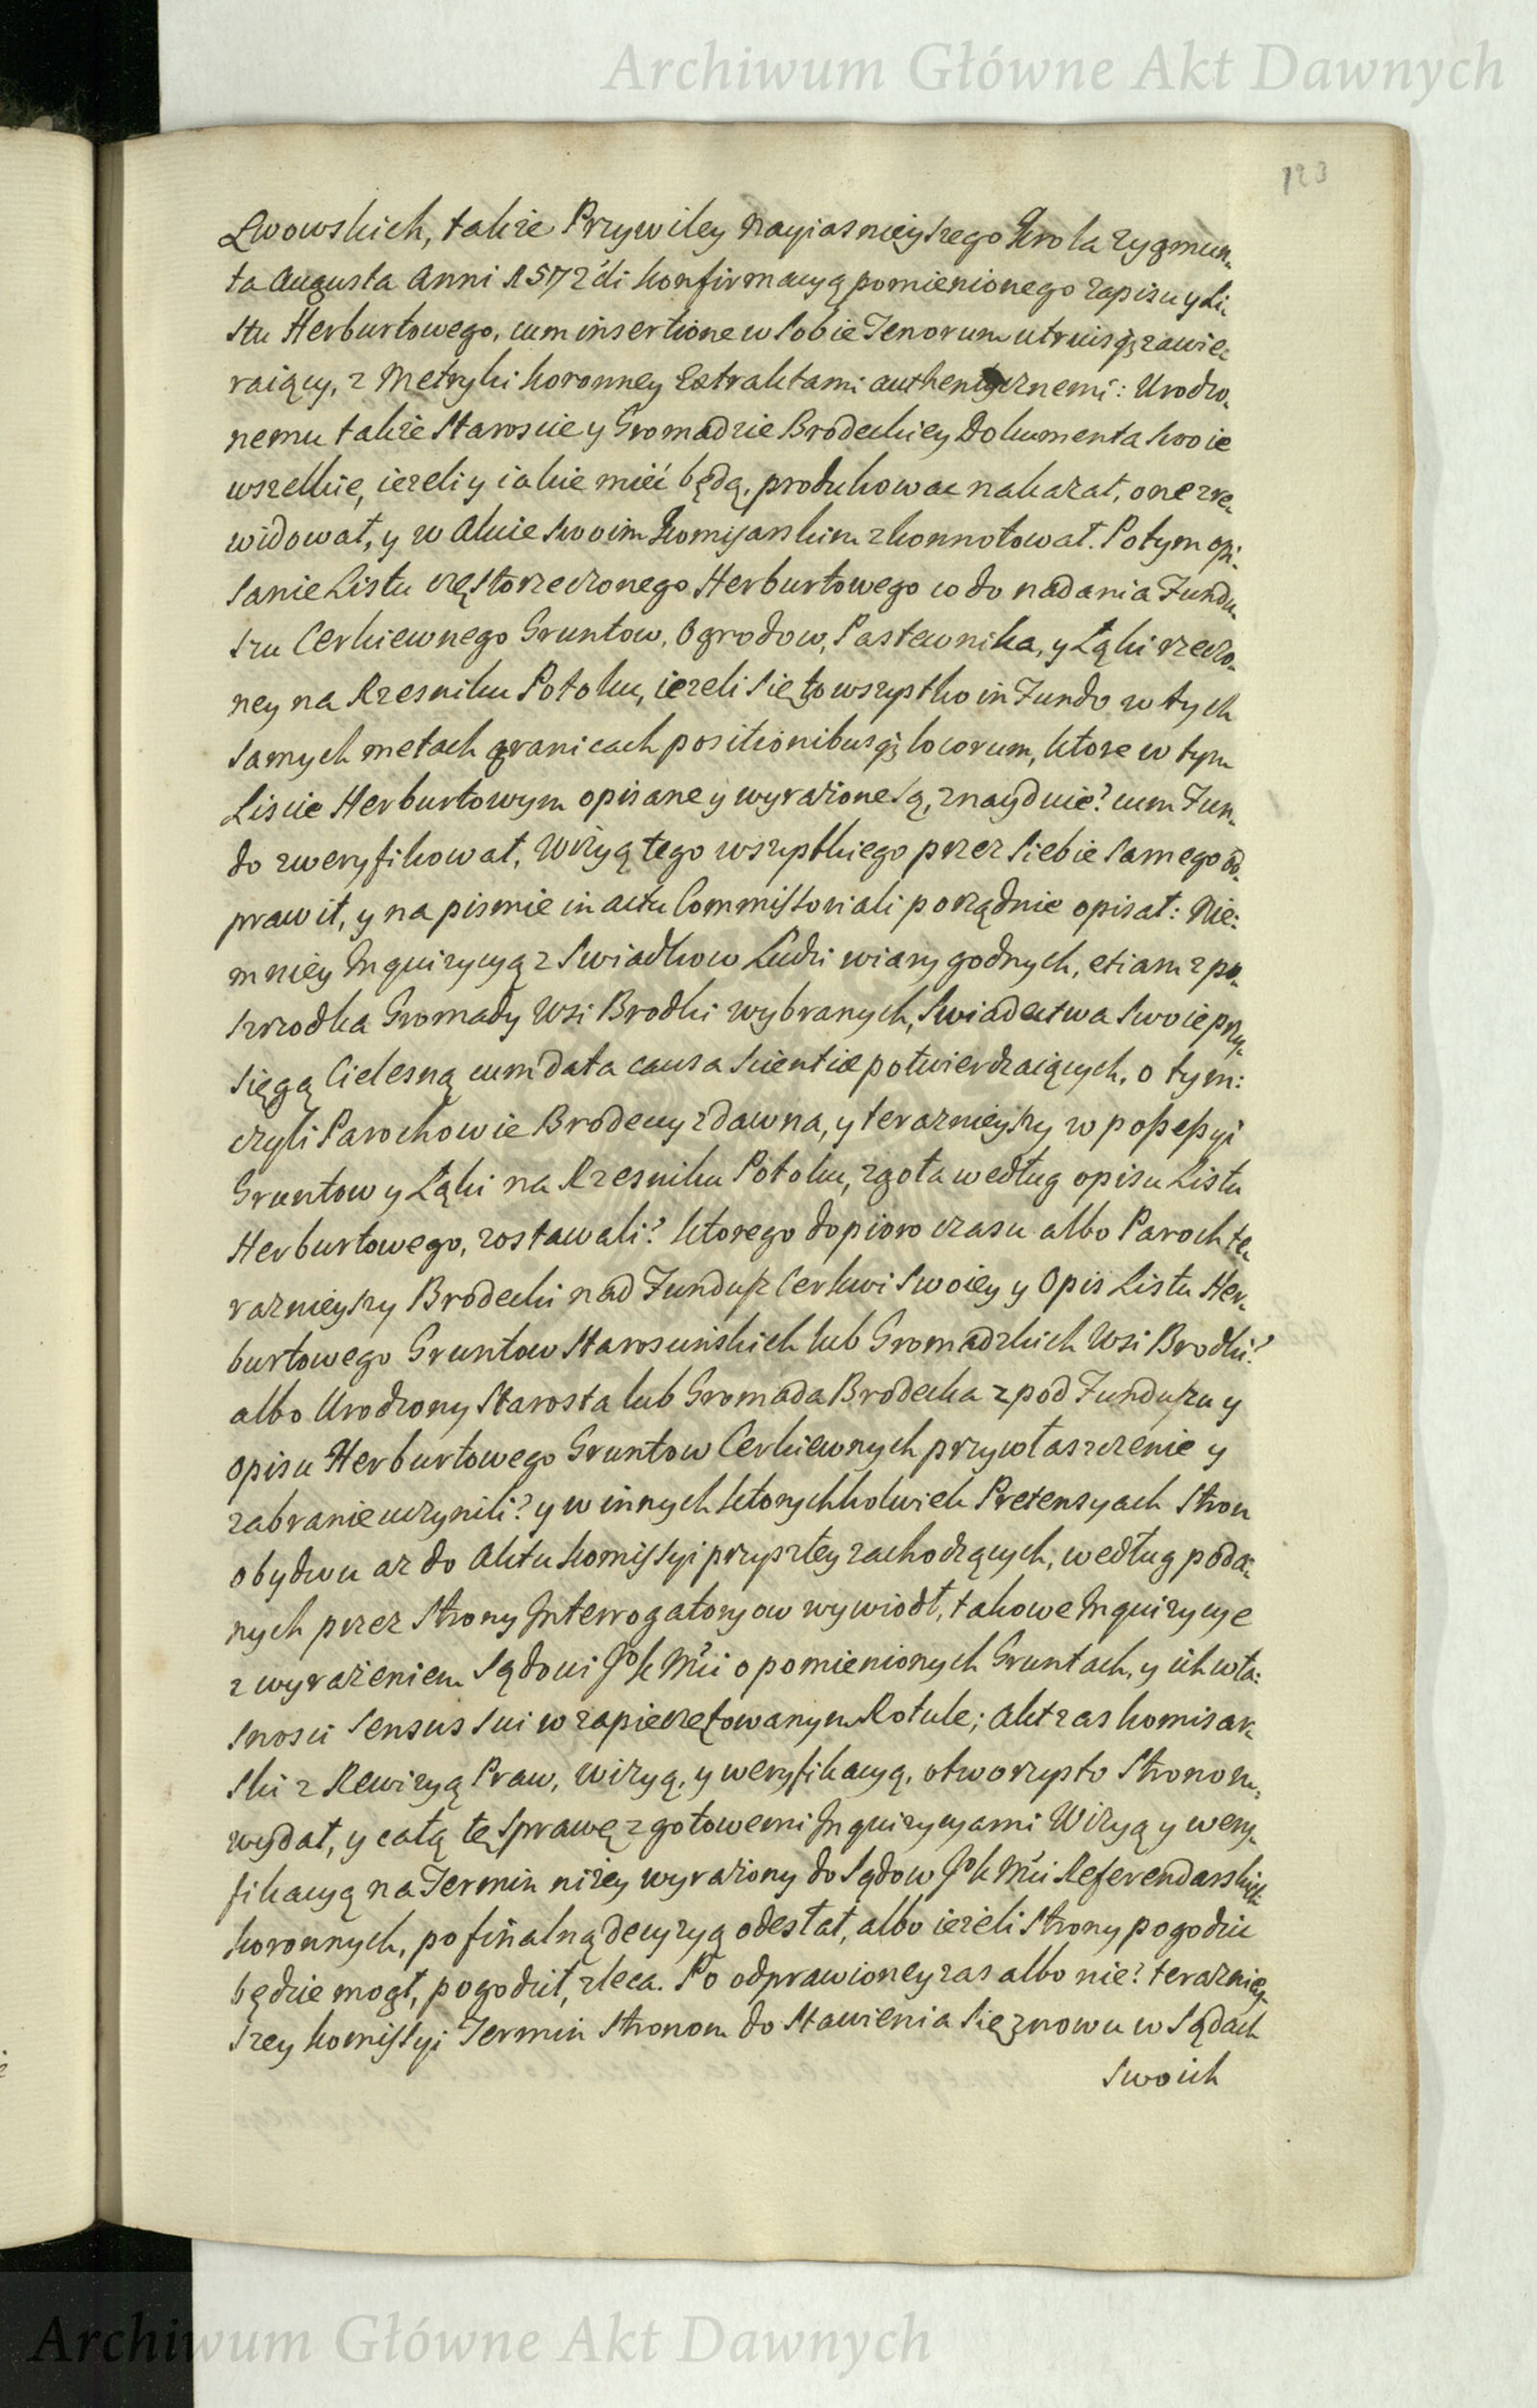 Archiwum Główne Akt Dawnych
123
Lwowskich, także Przywiley Nayiasnieyszego Krola Zygmun-
ta Augusta Anni 1572di konfirmacyą pomienionego zapisu y Li-
stu Herburtowego, cum insertione w sobie Tenorum utriusqz zawie-
raiący, z Metryki koronney Extraktami authentycznemi: Urodzo-
nemu także Staroscie y Gromadzie Brodeckiey Dokumenta swoie
wszelkie, ieżeli y iakie mieć będą, produkować nakazał, one zre-
widował, y w Akcie swoim Komisarskim zkonnotował. Potym opi-
sanie Listu częstorzeczonego Herburtowego co do nadania Fundu-
szu Cerkiewnego Gruntow, Ogrodow, Pastewnika, y Łąki rzeczo-
ney na Rzesniku Potoku, ieżeli się to wszystko in Fundo w tych
samych metach granicach positionibusqz locorum, ktore w tym
Liscie Herburtowym opisane y wyrażone są, znayduie? cum Fun-
do zweryfikował, Wizyą tego wszystkiego przez siebie samego od-
prawił, y na pismie in actu Commissoriali porządnie opisał: Nie-
mniey Inquizycyą z Swiadkow Ludzi wiary godnych, etiam z po-
szrzodka Gromady Wsi Brodki wybranych, Swiadectwa swoie przy-
sięgą Cielesną cum data causa scientiæ potwierdzaiących, o tym:
czyli Parochowie Brodeccy zdawna, y teraznieyszy w possessyi
Gruntow y Łąki na Rzesniku Potoku, zgoła według opisu Listu
Herburtowego, zostawali? ktorego dopioro czasu albo Paroch te-
raznieyszy Brodecki nad Fundusz Cerkwi swoiey y Opis Listu Her-
burtowego Gruntow Starościńskich lub Gromadzkich Wsi Brodki?
albo Urodzony Starosta lub Gromada Brodecka z pod Funduszu y
opisu Herburtowego Gruntow Cerkiewnych przywłaszczenie y
zabranie uczynili? y w innych ktorychkolwiek Pretensyach Stron
obydwu aż do Aktu komissyi przyszłey zachodzących, według poda-
nych przez Strony Interrogatoryow wywiodł, takowe Inquizycye
z wyrażeniem Sądowi JoK Mci o pomienionych Gruntach, y ich wła-
snosci sensus sui w zapieczętowanym Rotule; Akt zas komisar-
ski z Rewizyą Praw, wizyą, y weryfikacyą, otworzysto Stronom
wydał, y całą tę Sprawę z gotowemi Inquizycyami Wizyą y wery-
fikacyą na Termin niżey wyrażony do Sądow JoK Mci Referendarskich
koronnych, po finalną decyzyą odesłał, albo ieżeli Strony pogodzić
będzie mogł, pogodził, zleca. Po odprawioney zas albo nie? teraźniey-
szey komissyi Termin Stronom do Stawienia się znowu w Sądach
swoich
Archiwum Główne Akt Dawnych